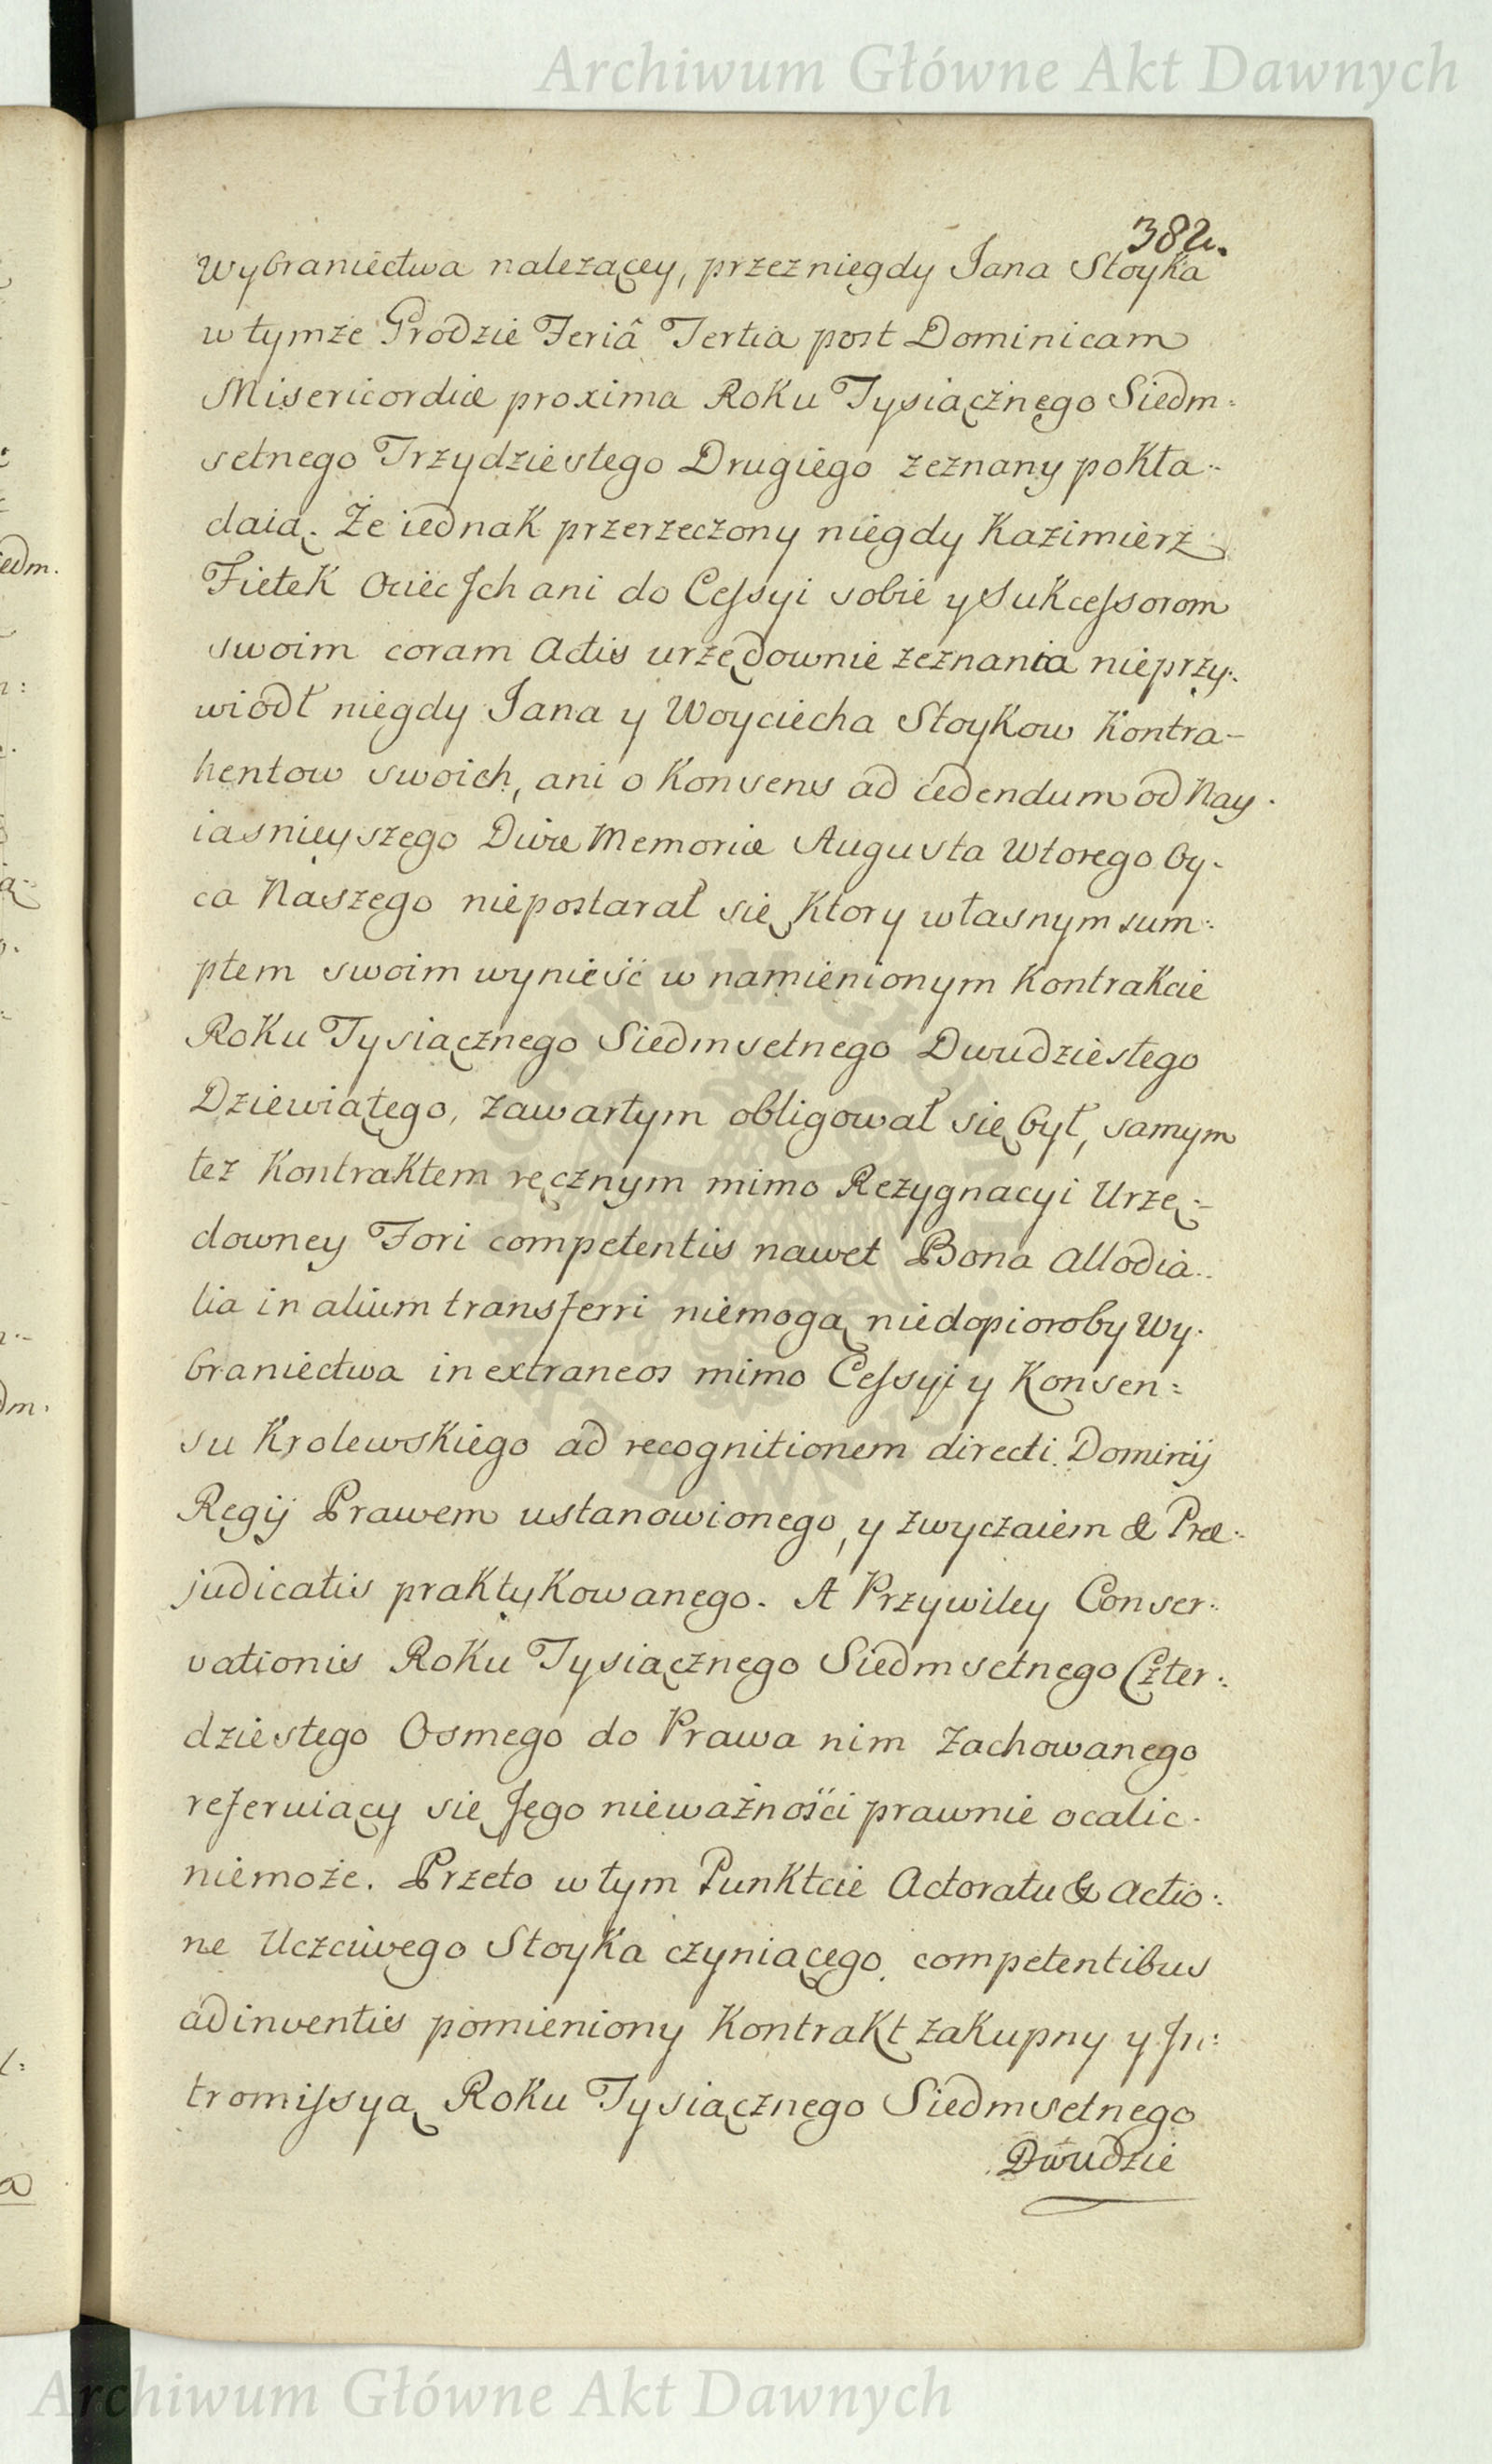 Archiwum Główne Akt Dawnych
382.
Wybraniectwa nalezącey, przez niegdy Jana Stoyka
w tymże Grodzie Feriâ Tertia post Dominicam
Misericordiæ proxima Roku Tysiącznego Siedm-
setnego Trzydziestego Drugiego zeznany pokła-
daią. Że iednak przerzeczony niegdy Kazimierz
Fietek Ociec Jch ani do Cessyi sobie y Sukcessorom
swoim coram Actis urzędownie zeznania nieprzy-
wiodł niegdy Jana y Woyciecha Stoykow Kontra-
hentow swoich, ani o Konsens ad cedendum od Nay-
iasnieyszego Divæ Memoriæ Augusta Wtorego Oy-
ca Naszego niepostarał się, Ktory własnym sum-
ptem swoim wynieść w namienionym Kontrakcie
Roku Tysiącznego Siedmsetnego Dwudziestego
Dziewiątego, zawartym obligował się był, samym
tez Kontraktem ręcznym mimo Rezygnacyi Urzę-
downey Fori competentis nawet Bona Allodia-
lia in alium transferri niemogą niedopioroby Wy-
braniectwa in extraneos mimo Cessyi y Konsen-
su Krolewskiego ad recognitionem directi Dominij
Regij Prawem ustanowionego, y zwyczaiem & Præ-
judicatis praktykowanego. A Przywiley Conser-
vationis Roku Tysiącznego Siedmsetnego Czter-
dziestego Osmego do Prawa nim zachowanego
referuiący się Jego nieważności prawnie ocalic
niemoże. Przeto w tym Punktcie Actoratu & Actio-
ne Uczciwego Stoyka czyniącego competentibus
adinventis pomieniony Kontrakt zakupny y Jn-
tromissyą Roku Tysiącznego Siedmsetnego
Dwudzie
Archiwum Główne Akt Dawnych